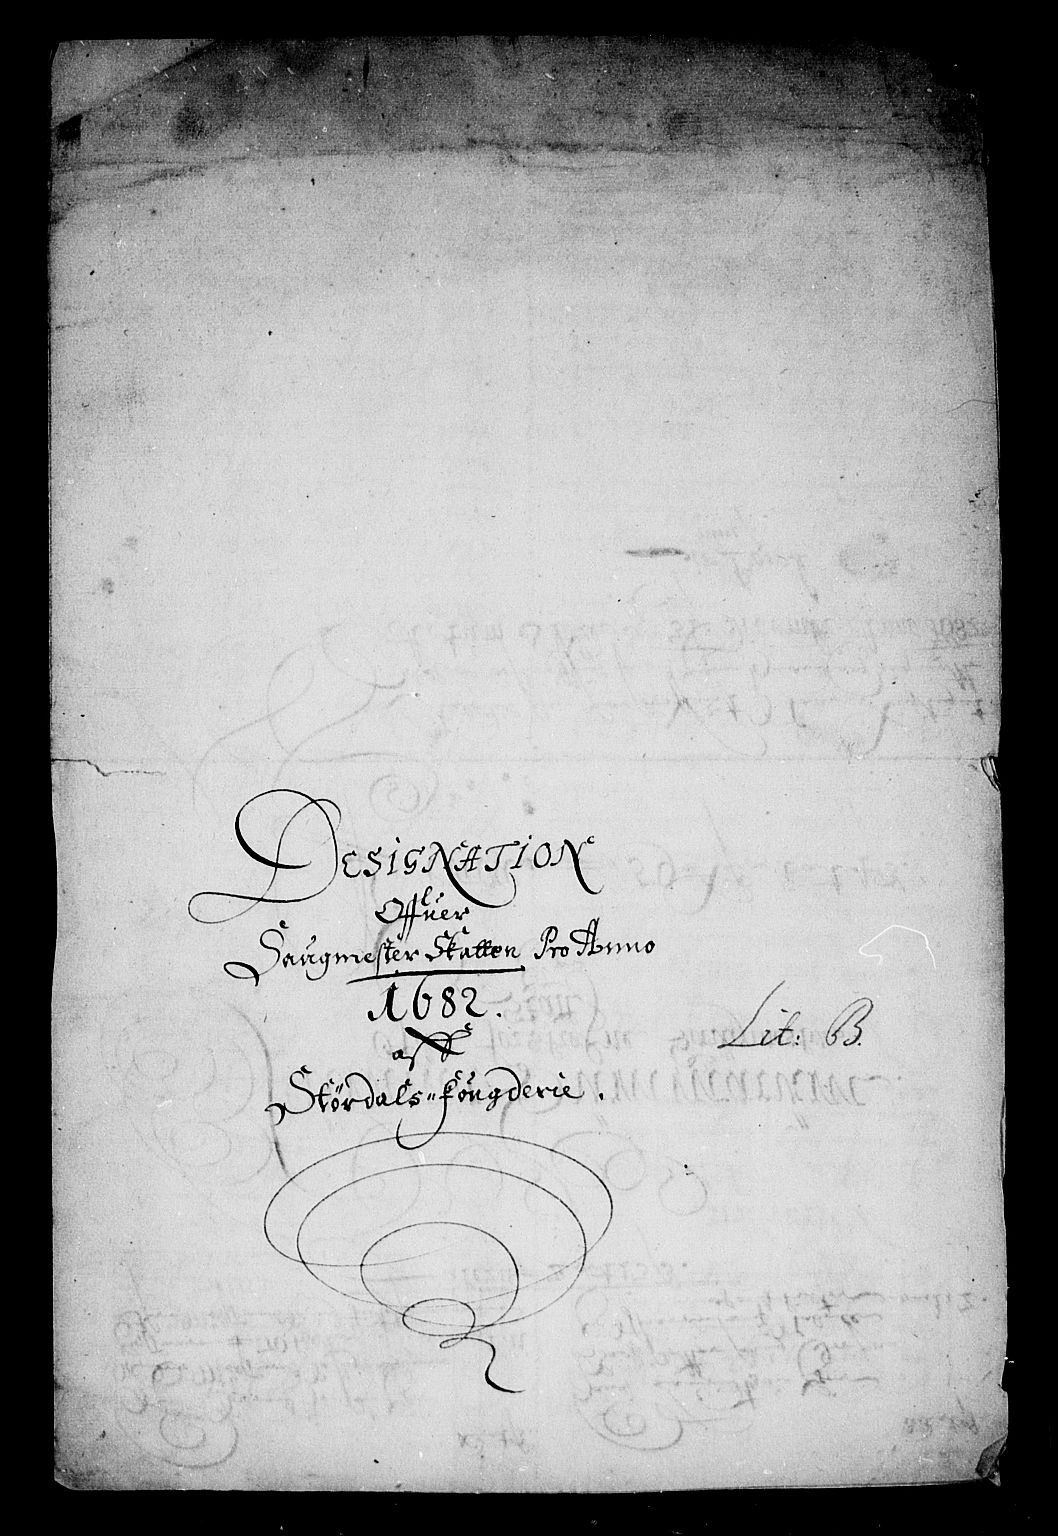 DESIGNATION
Offuer
Saugmester Skatten Pro Anno
1682.
aff
Størdals=fougderie.
Lit: B.